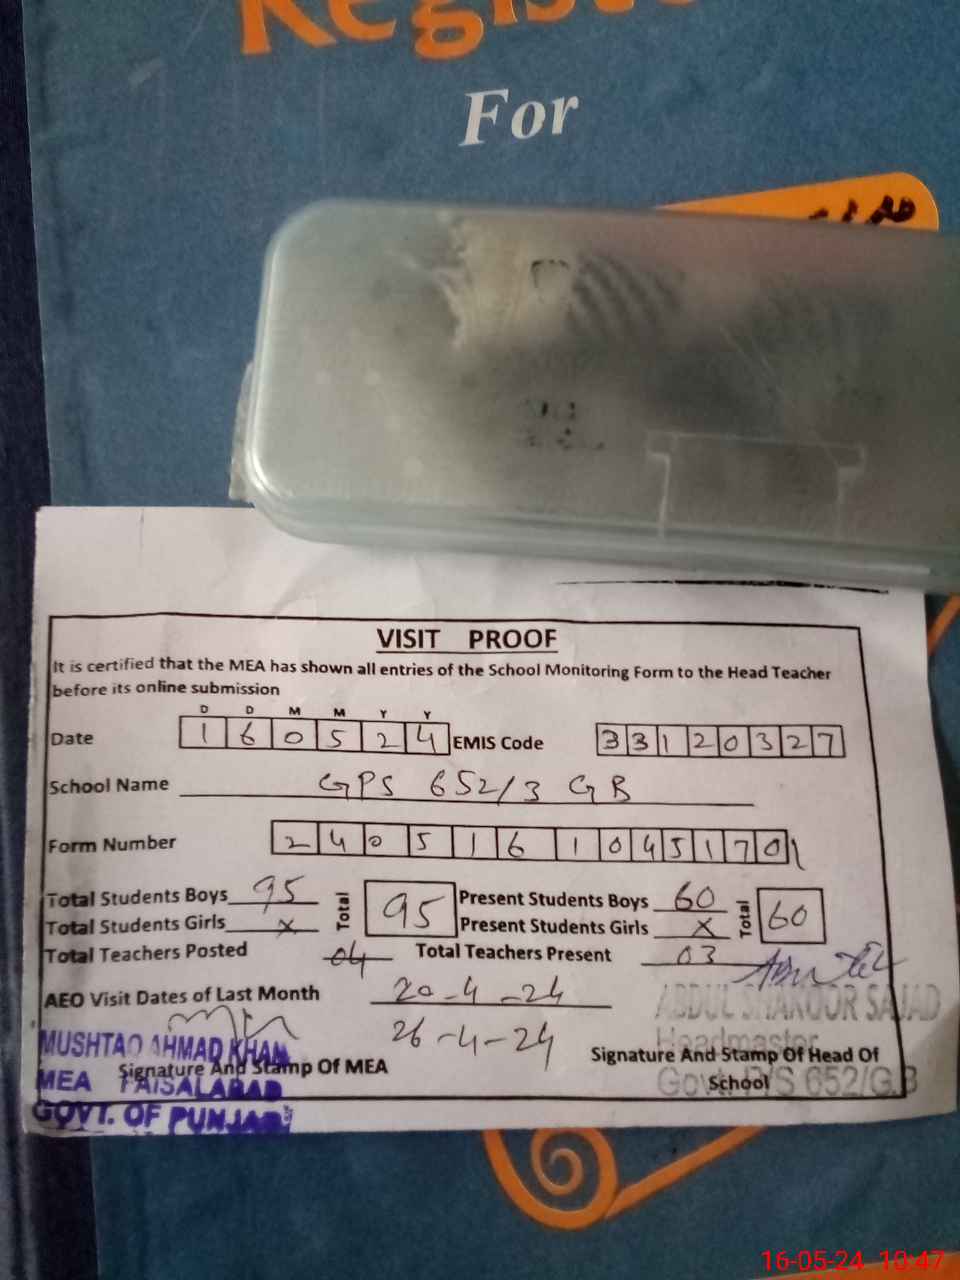 Register
For
VISIT PROOF
It is certified that the MEA has shown all entries of the School Monitoring Form to the Head Teacher
before its online submission
D D M M Y Y
Date 1 6 0 5 2 4 EMIS Code 3 3 1 2 0 3 2 7
School Name GPS 652/3 GB
Form Number 2 4 0 5 1 6 1 0 4 5 1 7 0 1
Total Students Boys 95 Total 95 Present Students Boys 60 Total 60
Total Students Girls X Present Students Girls X
Total Teachers Posted 04 Total Teachers Present 03
AEO Visit Dates of Last Month 20-4-24
26-4-24
ABDUL SHAKOOR SAJAD
Headmaster
Govt. P/S 652/G.B
MUSHTAQ AHMAD KHAN
MEA FAISALABAD
GOVT. OF PUNJAB
Signature And Stamp Of MEA
Signature And Stamp Of Head Of
School
16-05-24 10:47